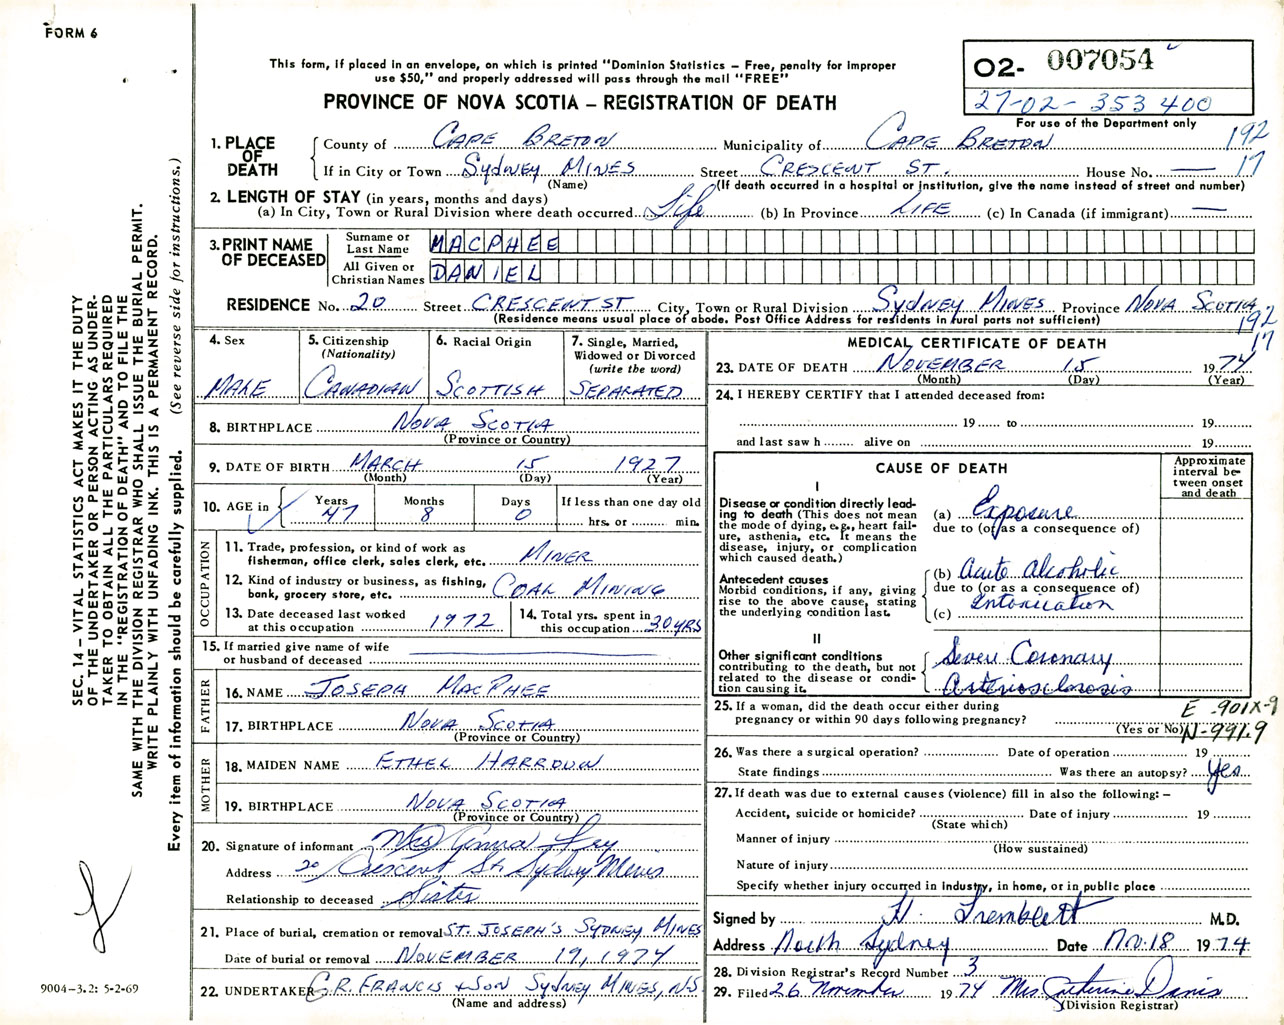 FORM 6
This form, if placed in an envelope, on which is printed "Dominion Statistics – Free, penalty for improper
use $50," and properly addressed will pass through the mail "FREE"
PROVINCE OF NOVA SCOTIA – REGISTRATION OF DEATH
O2- 007054
27-02-353400
For use of the Department only
192
17
1. PLACE OF DEATH
County of CAPE BRETON Municipality of CAPE BRETON
If in City or Town SYDNEY MINES Street CRESCENT ST. House No. —
(Name) (If death occurred in a hospital or institution, give the name instead of street and number)
2. LENGTH OF STAY (in years, months and days)
(a) In City, Town or Rural Division where death occurred Life (b) In Province LIFE (c) In Canada (if immigrant) —
3. PRINT NAME OF DECEASED
Surname or Last Name MACPHEE
All Given or Christian Names DANIEL
RESIDENCE No. 20 Street CRESCENT ST City, Town or Rural Division SYDNEY MINES Province NOVA SCOTIA
(Residence means usual place of abode. Post Office Address for residents in rural parts not sufficient)
192
17
4. Sex
MALE
5. Citizenship
(Nationality)
CANADIAN
6. Racial Origin
SCOTTISH
7. Single, Married,
Widowed or Divorced
(write the word)
SEPARATED
8. BIRTHPLACE NOVA SCOTIA
(Province or Country)
9. DATE OF BIRTH MARCH 15 1927
(Month) (Day) (Year)
10. AGE in
Years Months Days If less than one day old
47 8 0 hrs. or min.
OCCUPATION
11. Trade, profession, or kind of work as
fisherman, office clerk, sales clerk, etc. MINER
12. Kind of industry or business, as fishing,
bank, grocery store, etc. COAL MINING
13. Date deceased last worked
at this occupation 1972
14. Total yrs. spent in
this occupation 30 YRS
15. If married give name of wife
or husband of deceased
FATHER
16. NAME JOSEPH MACPHEE
17. BIRTHPLACE NOVA SCOTIA
(Province or Country)
MOTHER
18. MAIDEN NAME ETHEL
19. BIRTHPLACE NOVA SCOTIA
(Province or Country)
20. Signature of informant Mrs Anna
Address 20 Crescent St. Sydney Mines
Relationship to deceased Sister
21. Place of burial, cremation or removal ST. JOSEPH'S SYDNEY MINES
Date of burial or removal NOVEMBER 19, 1974
22. UNDERTAKER G.R. FRANCIS + SON SYDNEY MINES, N.S
(Name and address)
MEDICAL CERTIFICATE OF DEATH
23. DATE OF DEATH NOVEMBER 15 1974
(Month) (Day) (Year)
24. I HEREBY CERTIFY that I attended deceased from:
19 to 19
and last saw h alive on 19
CAUSE OF DEATH
Approximate
interval be-
tween onset
and death
I
Disease or condition directly lead-
ing to death (This does not mean
the mode of dying, e.g., heart fail-
ure, asthenia, etc. It means the
disease, injury, or complication
which caused death.)
(a) Exposure
due to (or as a consequence of)
Antecedent causes
Morbid conditions, if any, giving
rise to the above cause, stating
the underlying condition last.
(b) Acute Alcoholic
due to (or as a consequence of)
Intoxication
(c)
II
Other significant conditions
contributing to the death, but not
related to the disease or condi-
tion causing it.
Severe Coronary
Arteriosclerosis
25. If a woman, did the death occur either during
pregnancy or within 90 days following pregnancy?
(Yes or No)
E .901X-9
N-991.9
26. Was there a surgical operation? Date of operation 19
State findings Was there an autopsy? Yes
27. If death was due to external causes (violence) fill in also the following: –
Accident, suicide or homicide? Date of injury 19
(State which)
Manner of injury
(How sustained)
Nature of injury
Specify whether injury occurred in industry, in home, or in public place
Signed by H. Tremblett M.D.
Address North Sydney Date Nov. 18 1974
28. Division Registrar's Record Number 3
29. Filed 26 November 1974 Mrs Catherine Davis
(Division Registrar)
SEC. 14 – VITAL STATISTICS ACT MAKES IT THE DUTY
OF THE UNDERTAKER OR PERSON ACTING AS UNDER-
TAKER TO OBTAIN ALL THE PARTICULARS REQUIRED
IN THE "REGISTRATION OF DEATH" AND TO FILE THE
SAME WITH THE DIVISION REGISTRAR WHO SHALL ISSUE THE BURIAL PERMIT.
WRITE PLAINLY WITH UNFADING INK. THIS IS A PERMANENT RECORD.
Every item of information should be carefully supplied. (See reverse side for instructions.)
9004-3.2: 5-2-69